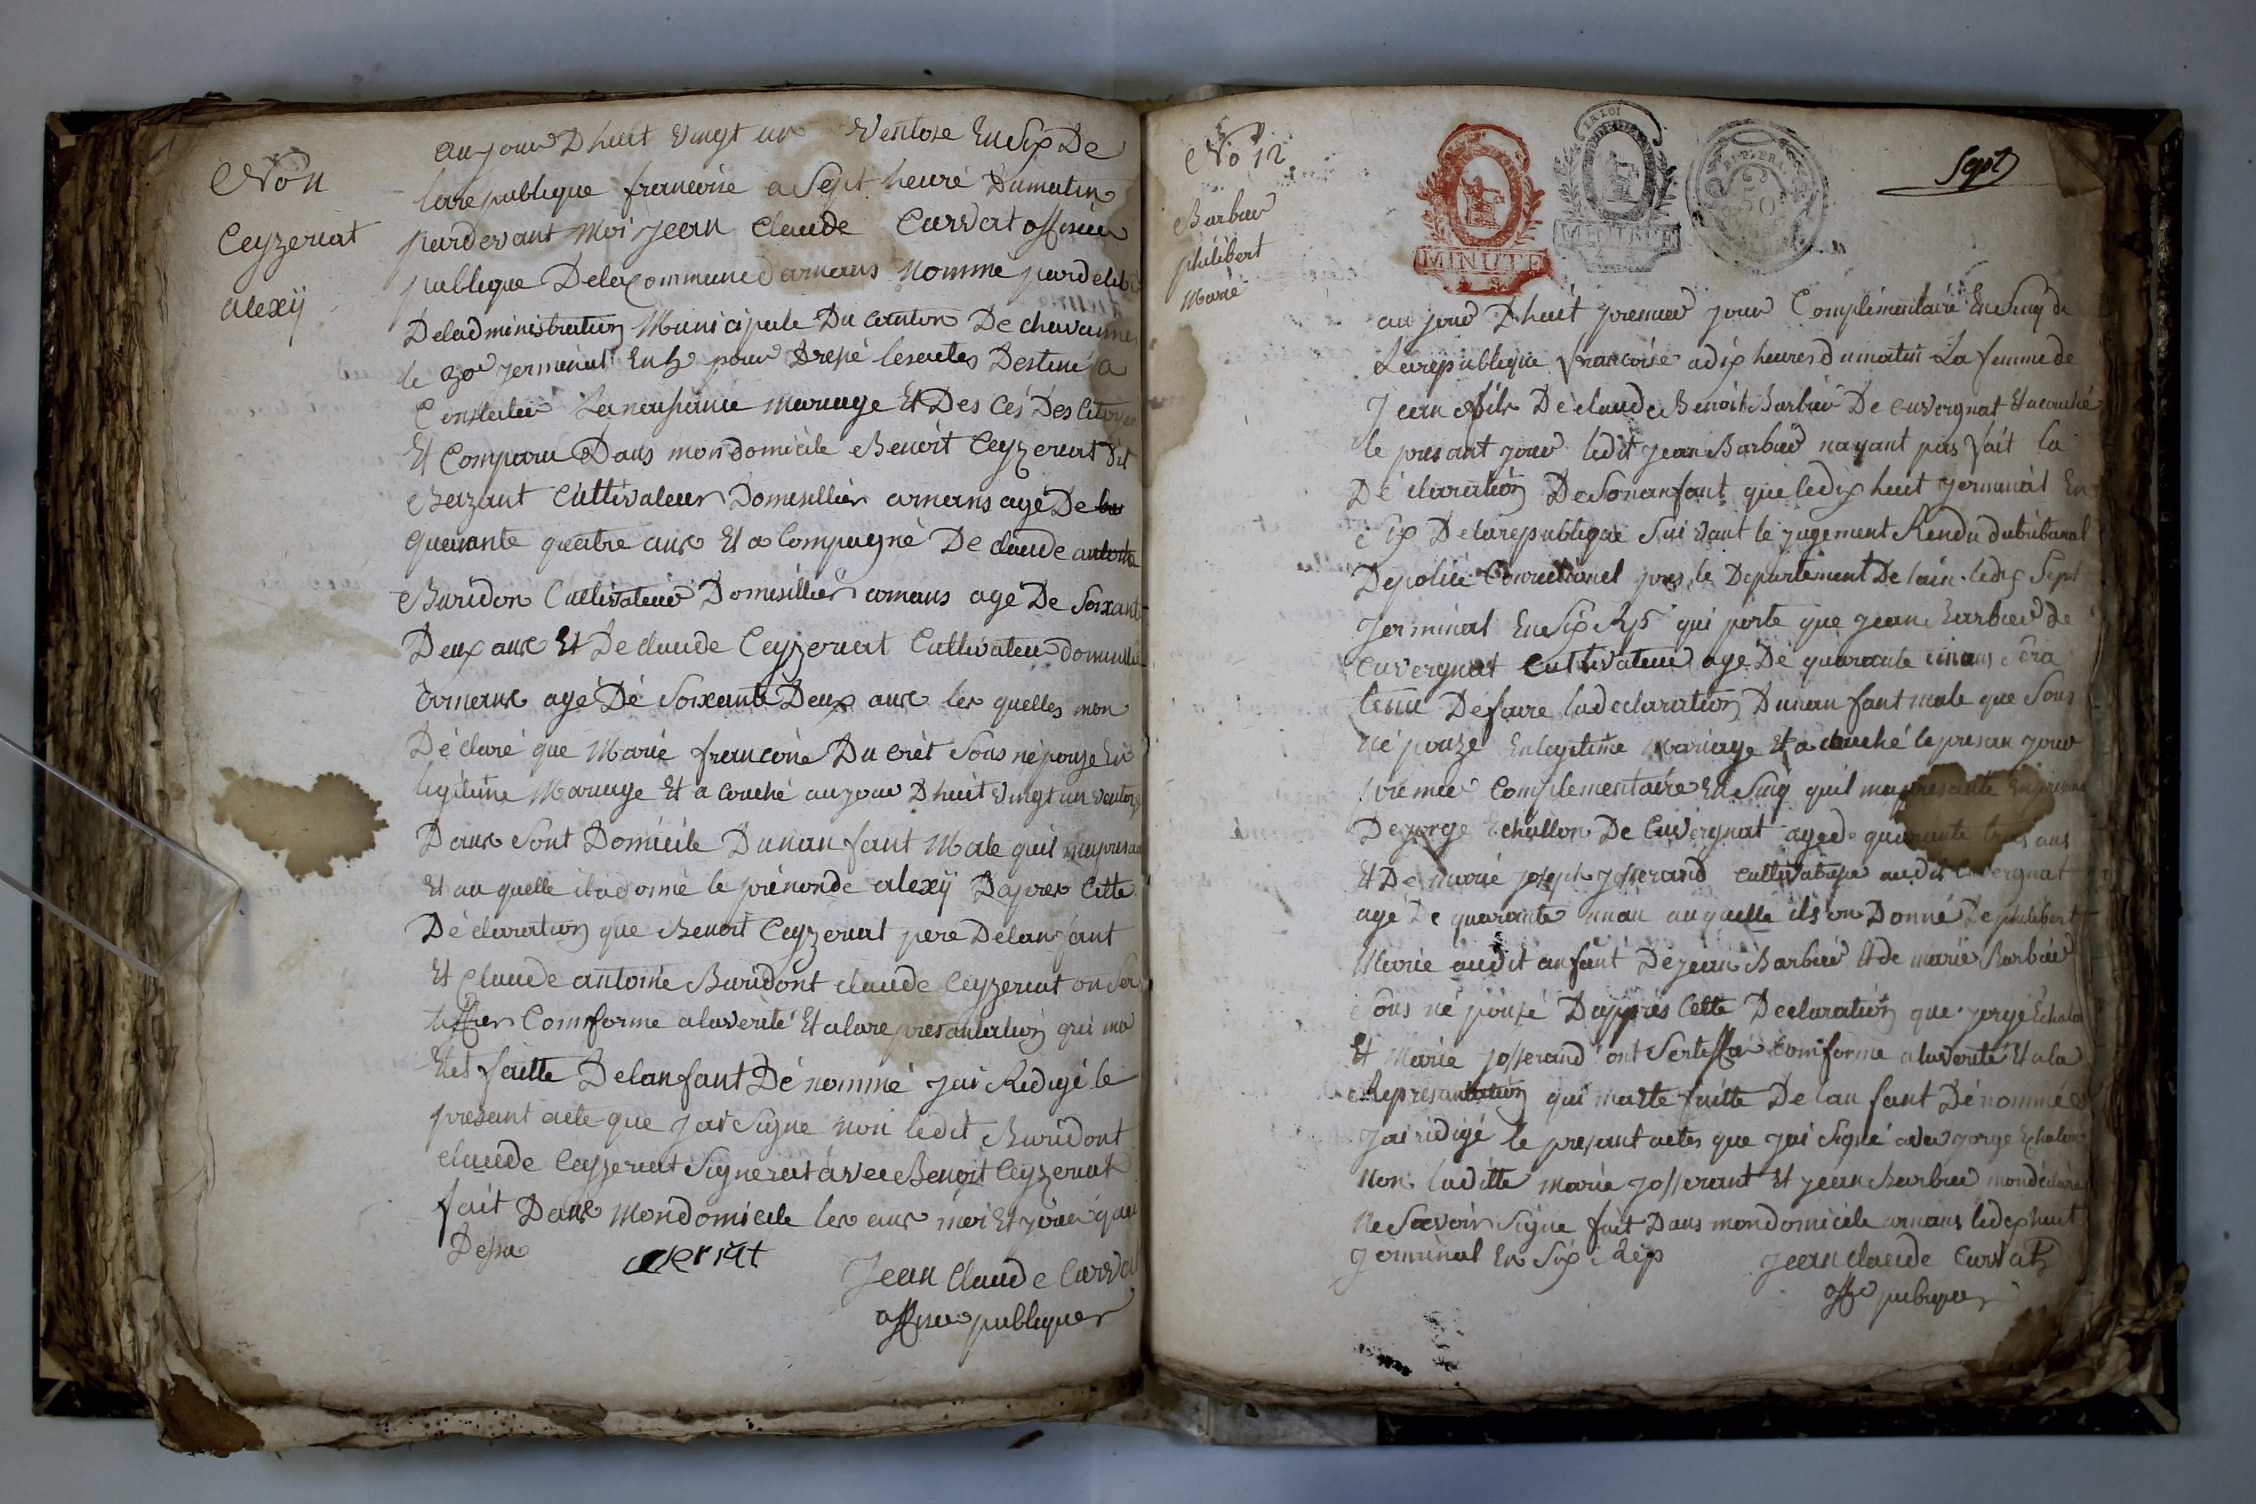 No 11
Ceyzeriat
alexij
aujour Dhuit vingt un ventose En Six De
larepublique francoise a Sept heure Dumatin
pardevant Moi jean Claude Curvat officier
publique Delacommune darnans nomme pardelib
Deladministration Municipale Du canton De chavannes
le 30 germinal En 5 pour Drepé lesactes Destiné a
Constater Lanaissance mariage Et Des cés Des Citoyen
Et Comparu Dans mondomicile Benoit Ceyzeriat Dit
Cultivateur Domisillier arnans agé De
quarante quatre ans Et acompagné De claude antoine
Buridon Cultivateur Domisillier arnans agé De Soixant
Deux ans Et De claude Ceyzeriat Cultivateur domisillié
arnans agé Dé Soixante Deux ans les quelles mon
Déclaré que Marie francoise Du crèt Sons népouze En
légitime Mariage Et a couché aujour Dhuit vingt un ventoze
Dans Sont Domicile Dunan fant Male quil mapresan
Et au quelle ila donné le prénonde alexij Dapres Cette
Déclaration que Benoit Ceyzeriat pere Delanfant
Et Claude antoine Buridont claude Ceyzeriat on Ser
tiffier Comforme alaverité Et alarepresantation qui ma
Etes faitte Delanfant Dé nommé jai Redigé le
presant acte que jai Signe non ledit Buridont
claude Ceyzeriat Signerat avec Benoit Ceyzeriat
fait Dans Mondomicile les ans moi Et jour que
Dessu
Jean Claude Curvat
officier publiquer
No 12
Barbier
philibert
Marie
LA LOI
MINUTE
MINUTE
Sept
au jour Dhuit premier jour Complémentaire En Sinq de
Larepublique francoise adix heures dumatin La femme de
Jean fils De claude Benoit Barbier De cuvergnat Et acouché
le presant jour ledit jean Barbier nayant pas fait la
Déclaration De Sonanfant que ledix huit germinal En
Six Delarepublique Sui vant le jugement Rendu dutribunal
Depolice Correctionel pres le Departement De lain ledix Sept
Jerminal En Six Rp qui porte que jean barbier de
Cuvergnat cultivateur agé Dé quarante cinans Sera
tenu Défaire ladeclaration Dunan fant male que Sons
né pouze En legitime Mariage Et a couché lepresan jour
premier Complementaire En Sinq quil mapresanté En presence
De jorge Echallon De Cuvergnat agé de quarante trois ans
Et De marie joseph josserand cultivatrise audit Cuvergnat
agé De quarante unan auquelle ils on Donné De philibert
Marie audit anfant Dé jean Barbier Et de marie Barbier
Sons né pouzé Dappres Cette Declaration que jorge Echalon
Et Marie josserand ont Sertiffié Comforme alaverité Et ala
Represantation qui maete faitte Delan fant Dé nommé
jai ridigé le presant actes que jai Signé avec jorge Echalon
Non laditte marie josserant Et jean Barbier mondeclaré
Ne Scavoir Signe fait Dans mondomicile arnans ledix huit
germinal En Six Rep
jean claude Curvat
offi publiquer